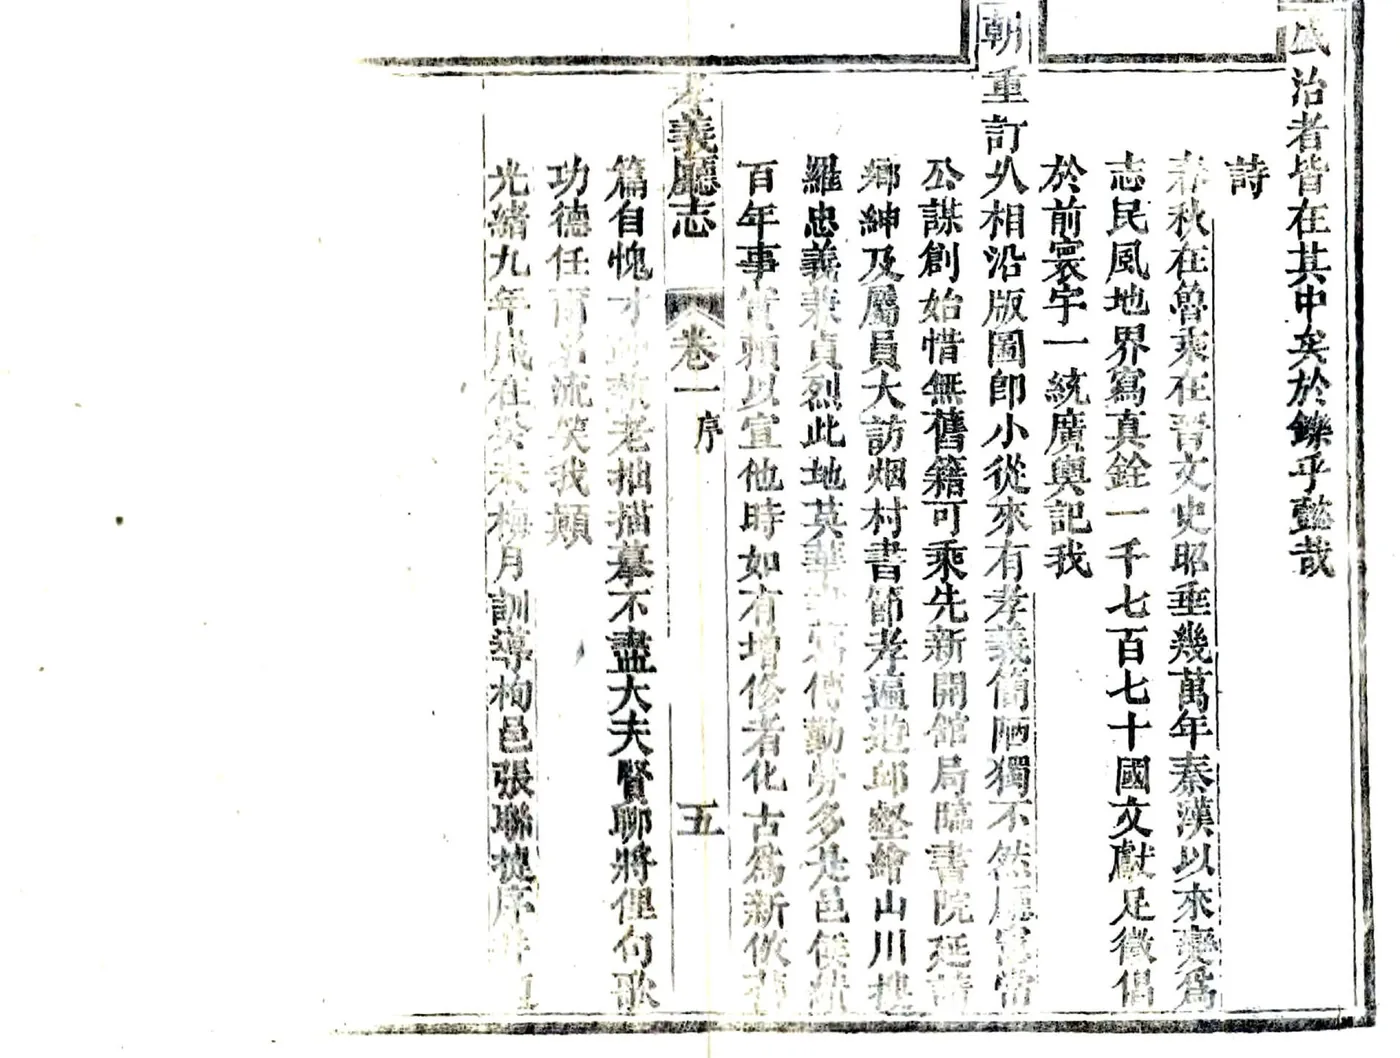 盛治者皆在其中矣於鑠乎懿哉
詩
春秋在魯乘在晉文史昭垂幾萬年秦漢以來變為
志民風地界寫真銓一千七百七十國文獻足徵倡
於前寰宇一統廣輿記我
朝重訂以相沿版圖即小從來有孝義簡陋獨不然廳憲常
公謀創始惜無舊籍可乘先新開館局臨書院延請
鄉紳及屬員大訪烟村書節孝遍遊邱壑繪山川搜
羅忠義兼貞烈此地莫華傳勤勞多是邑侯
百年事實賴以宣他時如有增修者化古為新依
孝義廳志 卷一 序 五
篇自愧才老拙描摹不盡大夫賢聊將俚句歌
功德任流笑我顛
光緒九年歲在癸未梅月訓導栒邑張聯捷序